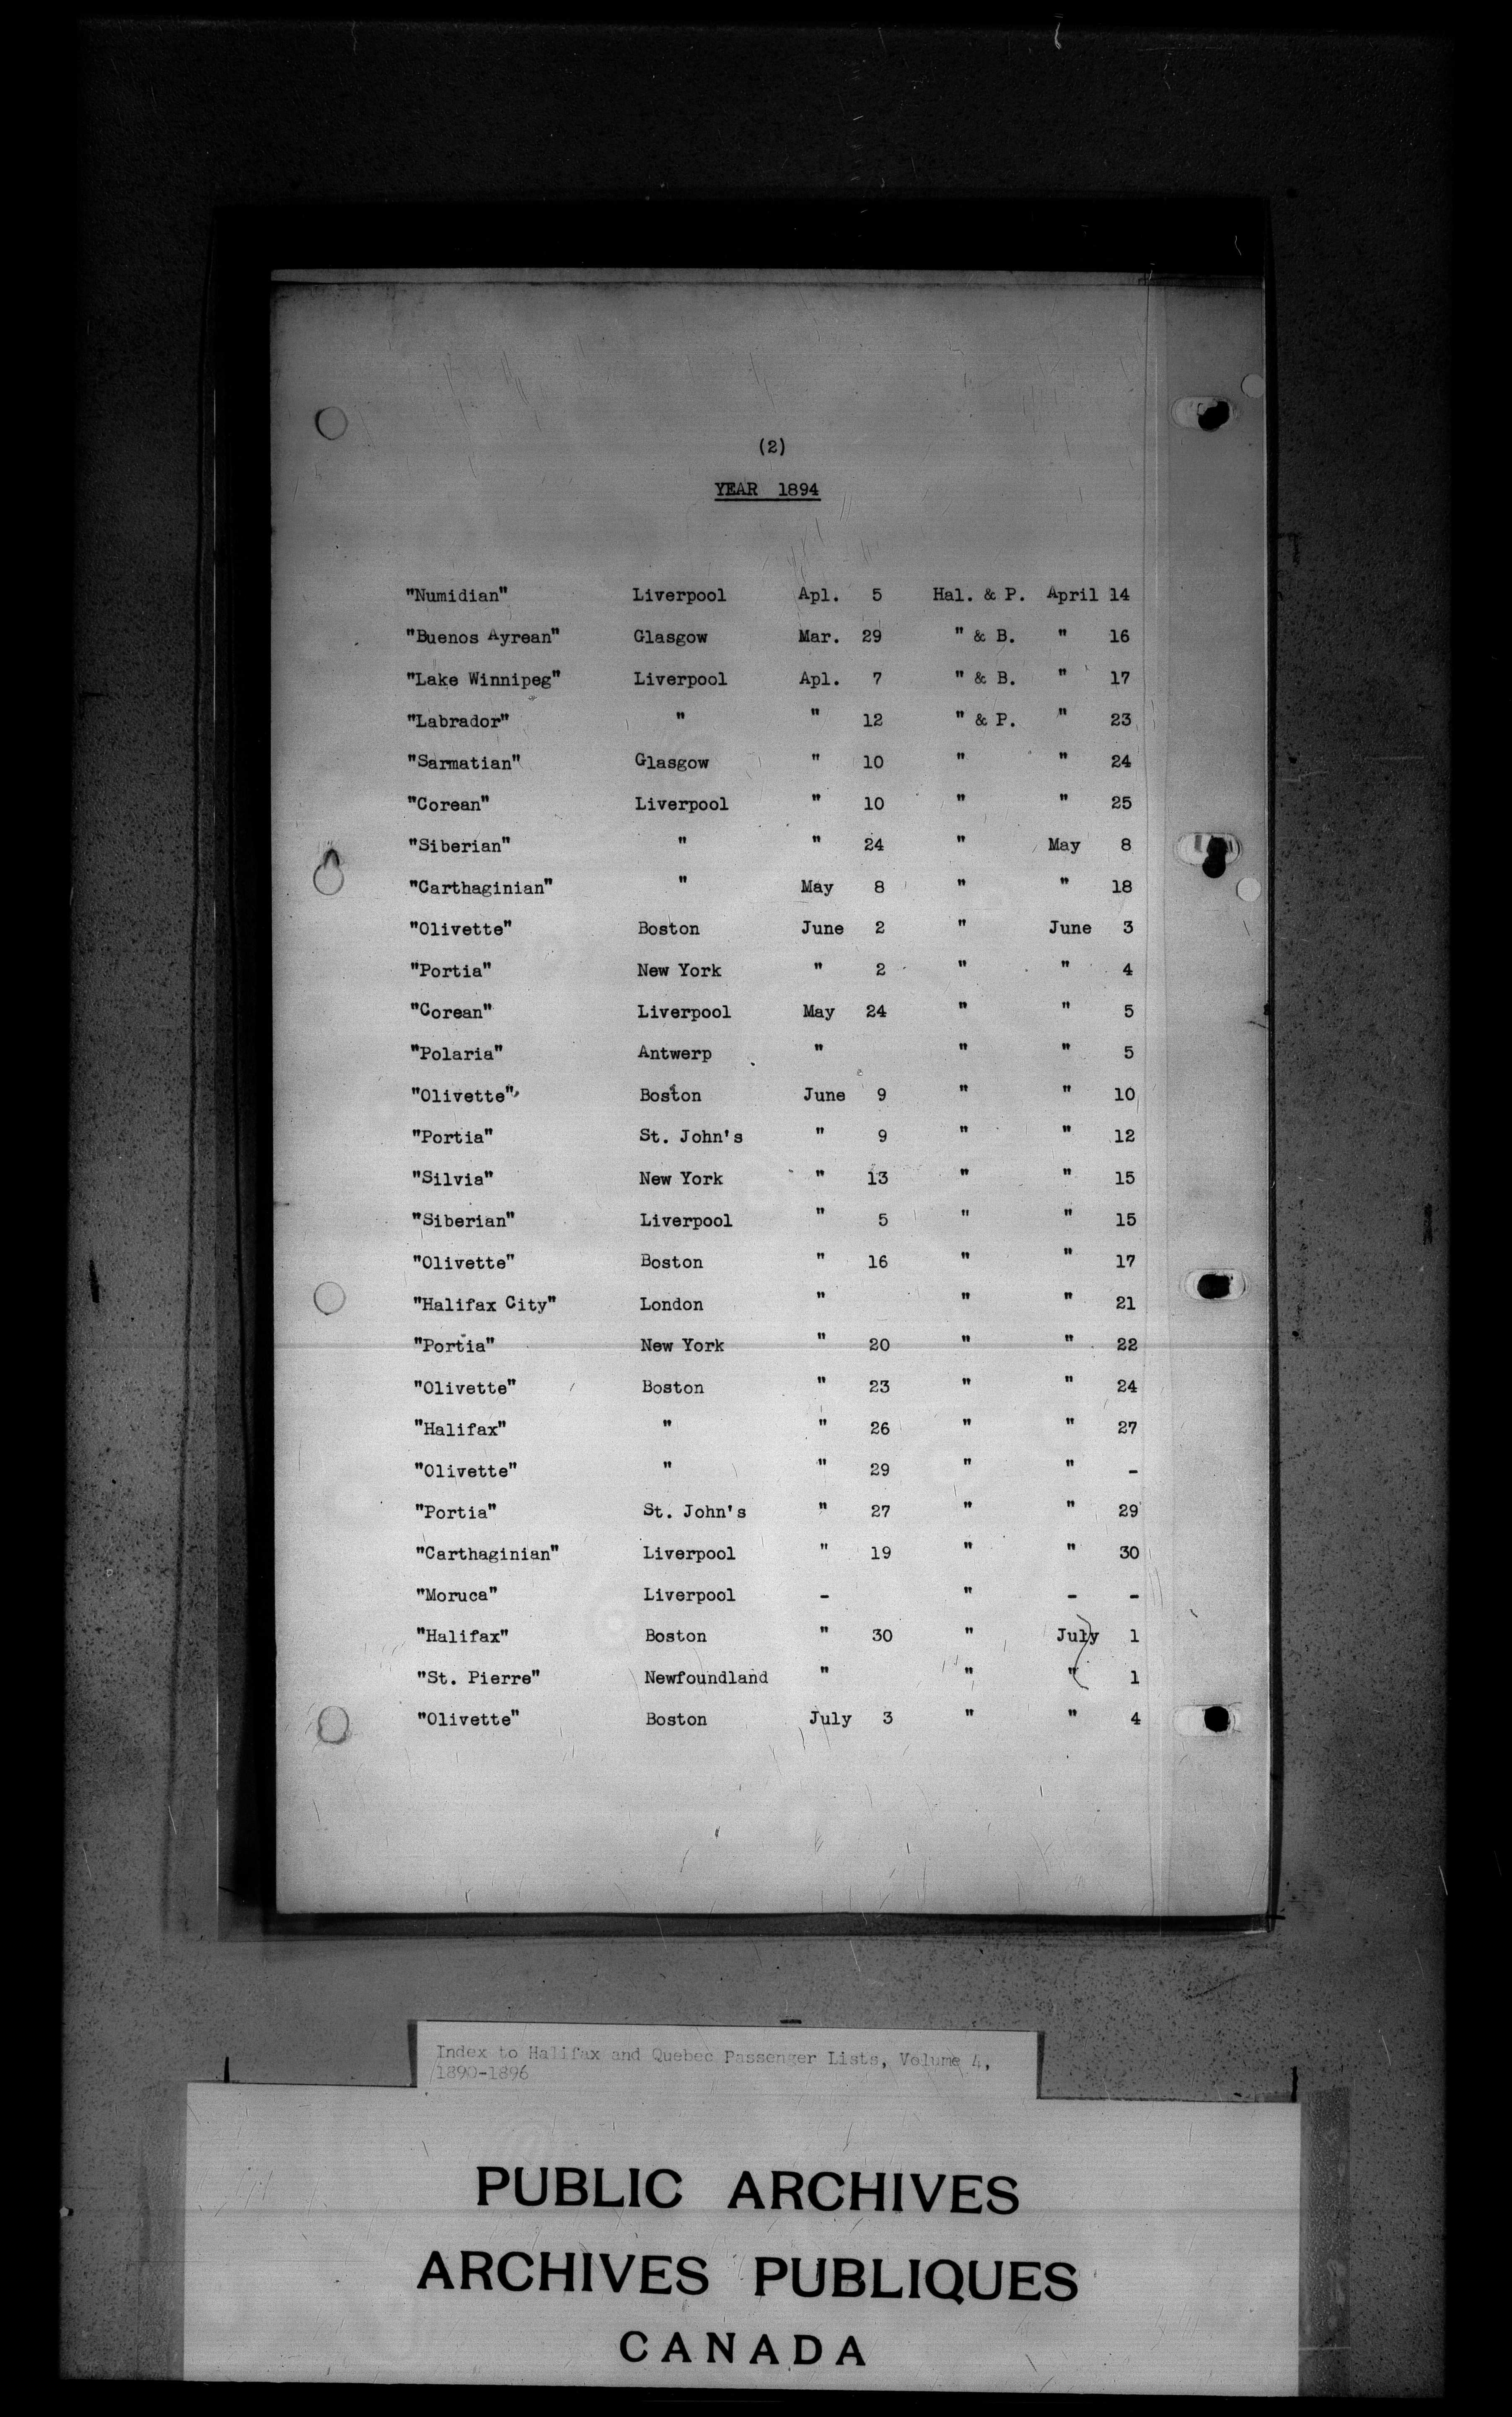 (2)
YEAR 1894
"Numidian" Liverpool Apl. 5 Hal. & P. April 14
"Buenos Ayrean" Glasgow Mar. 29 " & B. " 16
"Lake Winnipeg" Liverpool Apl. 7 " & B. " 17
"Labrador" " " 12 " & P. " 23
"Sarmatian" Glasgow " 10 " " 24
"Corean" Liverpool " 10 " " 25
"Siberian" " " 24 " May 8
"Carthaginian" " May 8 " " 18
"Olivette" Boston June 2 " June 3
"Portia" New York " 2 " " 4
"Corean" Liverpool May 24 " " 5
"Polaria" Antwerp " " " 5
"Olivette" Boston June 9 " " 10
"Portia" St. John's " 9 " " 12
"Silvia" New York " 13 " " 15
"Siberian" Liverpool " 5 " " 15
"Olivette" Boston " 16 " " 17
"Halifax City" London " " " 21
"Portia" New York " 20 " " 22
"Olivette" Boston " 23 " " 24
"Halifax" " " 26 " " 27
"Olivette" " " 29 " " -
"Portia" St. John's " 27 " " 29
"Carthaginian" Liverpool " 19 " " 30
"Moruca" Liverpool - " - -
"Halifax" Boston " 30 " July 1
"St. Pierre" Newfoundland " " " 1
"Olivette" Boston July 3 " " 4
Index to Halifax and Quebec Passenger Lists, Volume 4,
1890-1896
PUBLIC ARCHIVES
ARCHIVES PUBLIQUES
CANADA